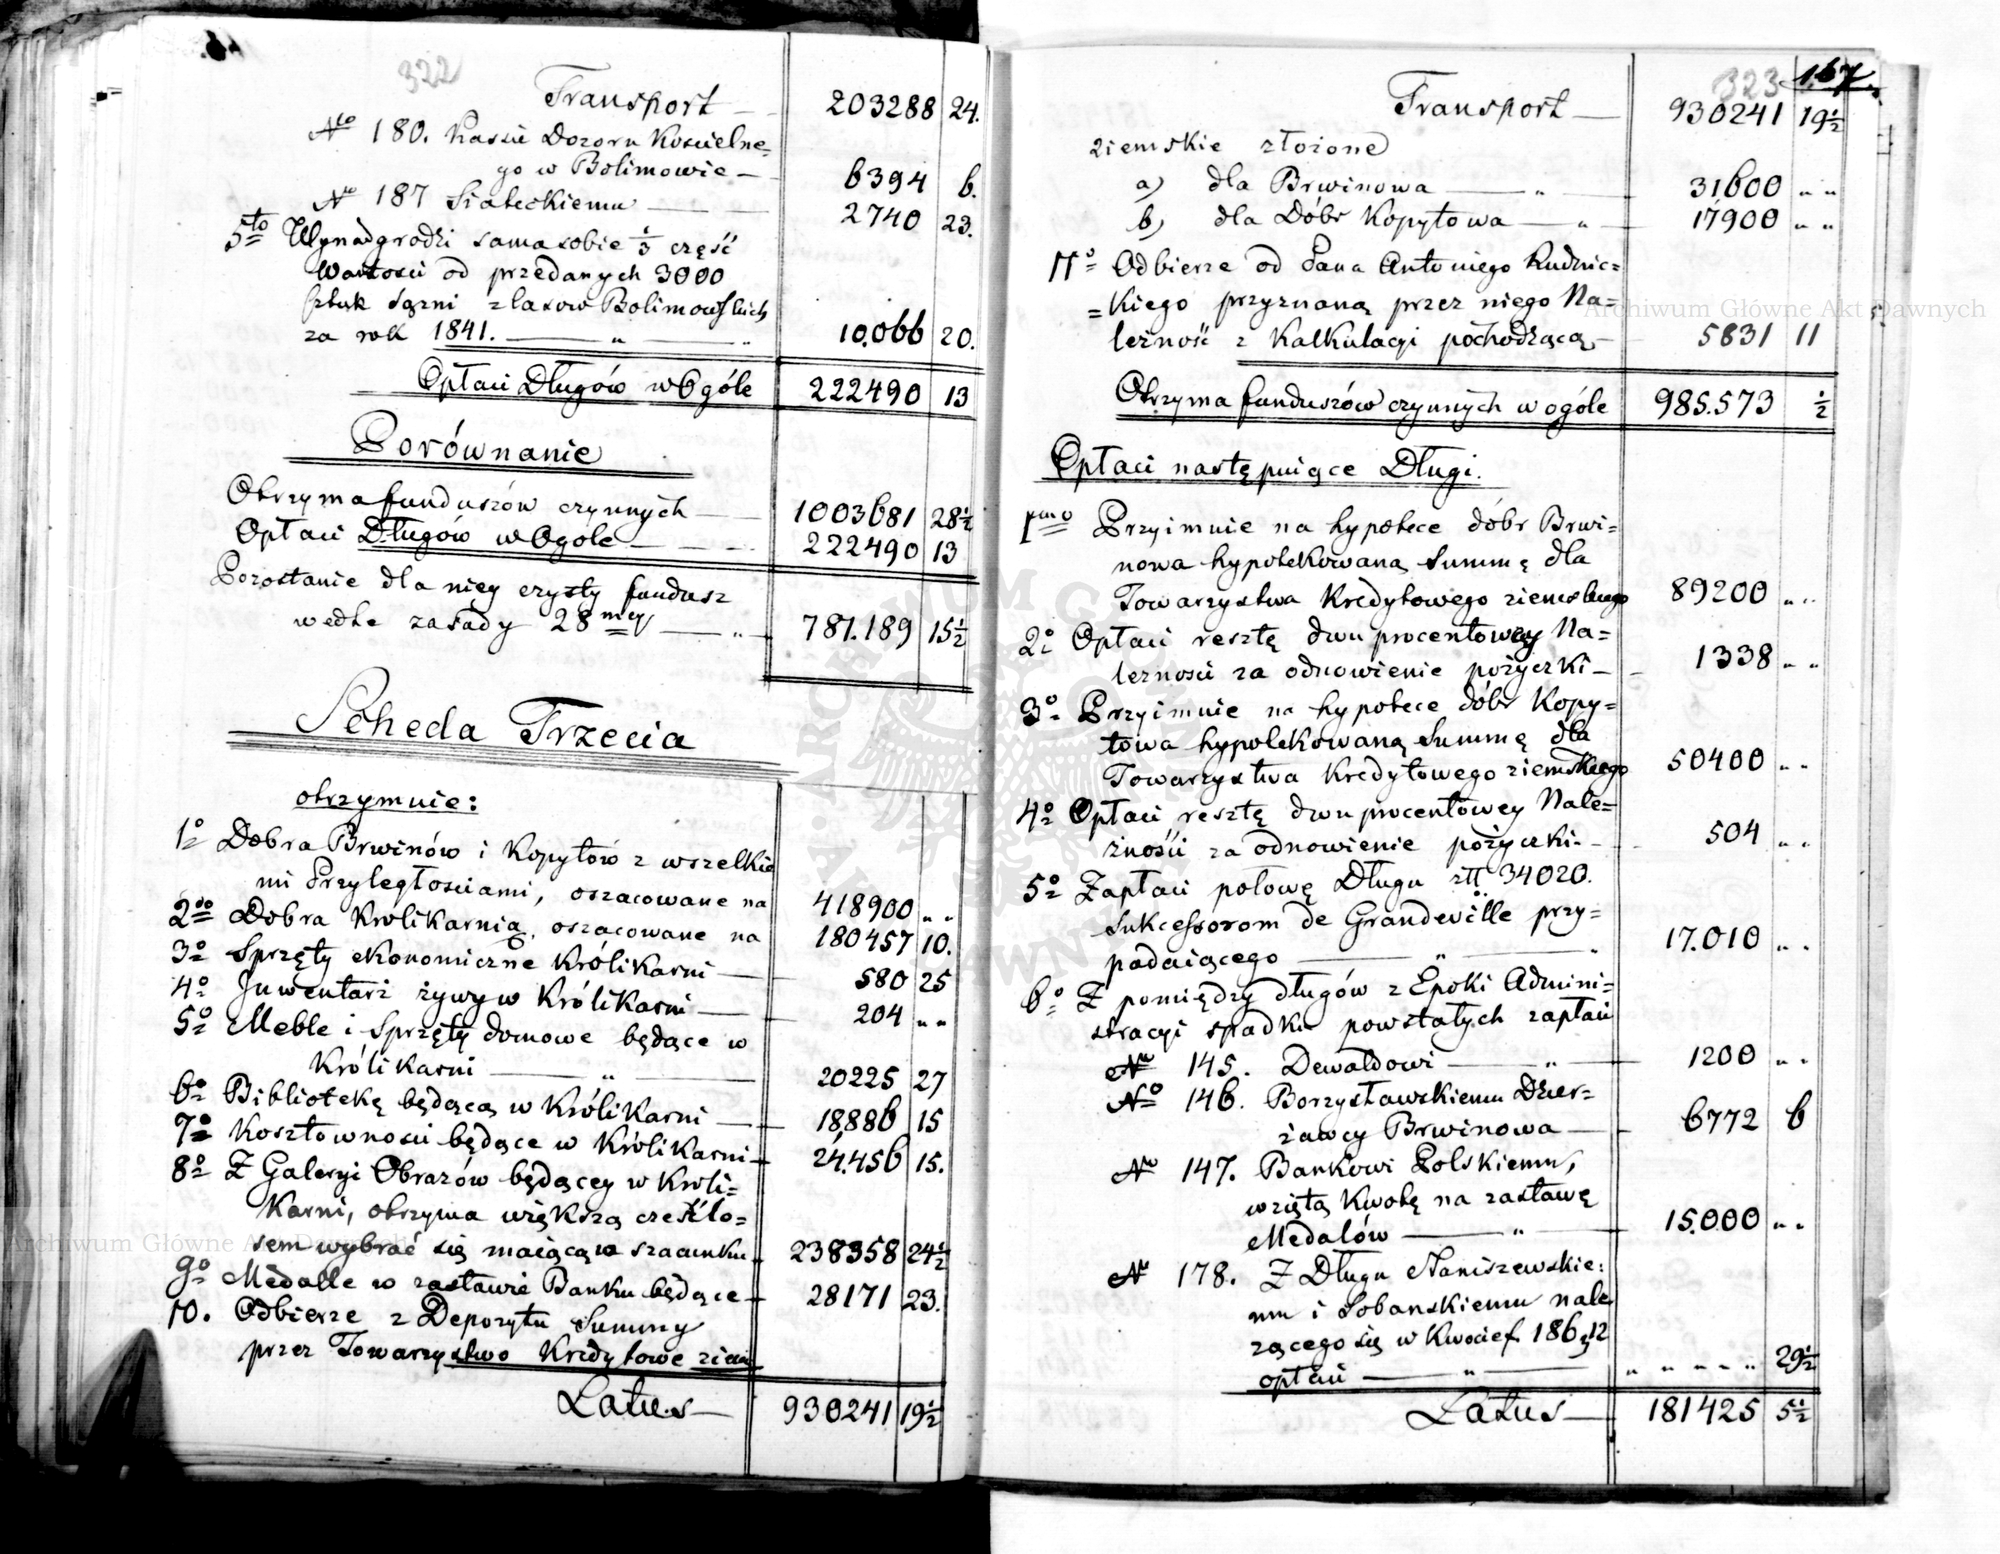 322
Transport — 203288 24.
No 180. Kassie Dozoru Kościelne=
go w Bolimowie — 6394 6.
No 187 Siateckiemu — 2740 23.
5to Wynadgrodzi sama sobie 1/3 część
Wartości od przedanych 3000
sztuk sągni z lasow Bolimowskich
za rok 1841. — „ — 10.066 20.
Opłaci Długów w Ogóle 222490 13
Porównanie
Otrzyma funduszów czynnych — 1003681 28½
Opłaci Długów w Ogóle — 222490 13
Pozostanie dla niey czysty fundusz
wedle zasady 28mey — „ — 781.189 15½
Scheda Trzecia
otrzymuie:
1o Dobra Brwinów i Kopytów z wszelkie
mi Przyległościami, oszacowane na 418900 „ „
2do Dobra Królikarnią, oszacowane na 180457 10.
3o Sprzęty ekonomiczne Królikarni — 580 25
4o Inwentarz żywy w Królikarni — 204 „ „
5o Meble i Sprzęty domowe będące w
Królikarni — „ — 20225 27
6o Bibliotekę będącą w Królikarni — 18886 15
7o Kosztowności będące w Królikarni — 24.456 15.
8o Z Galeryi Obrazów będącey w Kroli=
Karni, otrzyma większą cześć lo=
sem wybrać się maiącą w szacunku — 238358 24½
9o Medalle w zastawie Banku będące — 28171 23.
10. Odbierze z Depozytu Summy
przez Towarzystwo Kredytowe ziem
Latus — 930241 19½
323 167
Transport — 930241 19½
ziemskie złożone
a) dla Brwinowa — „ — 31600 „ „
b) dla Dóbr Kopytowa — „ — 17900 „ „
11o Odbierze od Pana Antoniego Rudnic=
=kiego przyznaną przez niego Na=
leżność z Kalkulacyi pochodzącą — 5831 11
Otrzyma funduszów czynnych w ogóle 985.573 ½
Opłaci następuiące Długi.
1mo Przyimuie na hypotece dóbr Brwi=
nowa hypotekowaną Summę dla
Towarzystwa Kredytowego ziemskiego 89200 „ „
2o Opłaci resztę dwu procentowey Na=
leżności za odnowienie pożyczki — 1338 „ „
3o Przyimuie na hypotece dóbr Kopy=
towa hypotekowaną Summę dla
Towarzystwa Kredytowego ziemskiego 50400 „ „
4o Opłaci resztę dwu procentowey Nale=
żności za odnowienie pożyczki — 504 „ „
5o Zapłaci połowę Długu złł 34020.
Sukcessorom de Grandeville przy=
padaiącego — „ — „ 17.010 „ „
6o Z pomiędzy długów z Epoki Admini=
stracyi spadku powstałych zapłaci
No 145. Dewaldowi — „ — 1200 „ „
No 146. Borzysławskiemu Dzier=
żawcy Brwinowa — 6772 6
No 147. Bankowi Polskiemu,
wziętą Kwotę na zastawę
Medalów — „ — 15.000 „ „
No 178. Z Długu Staniszewskie=
mu i Sobanskiemu nale
żącego się w Kwocie f. 186 g 12
opłaci — „ — „ „ „ „ „ 29½
Latus — 181425 5½